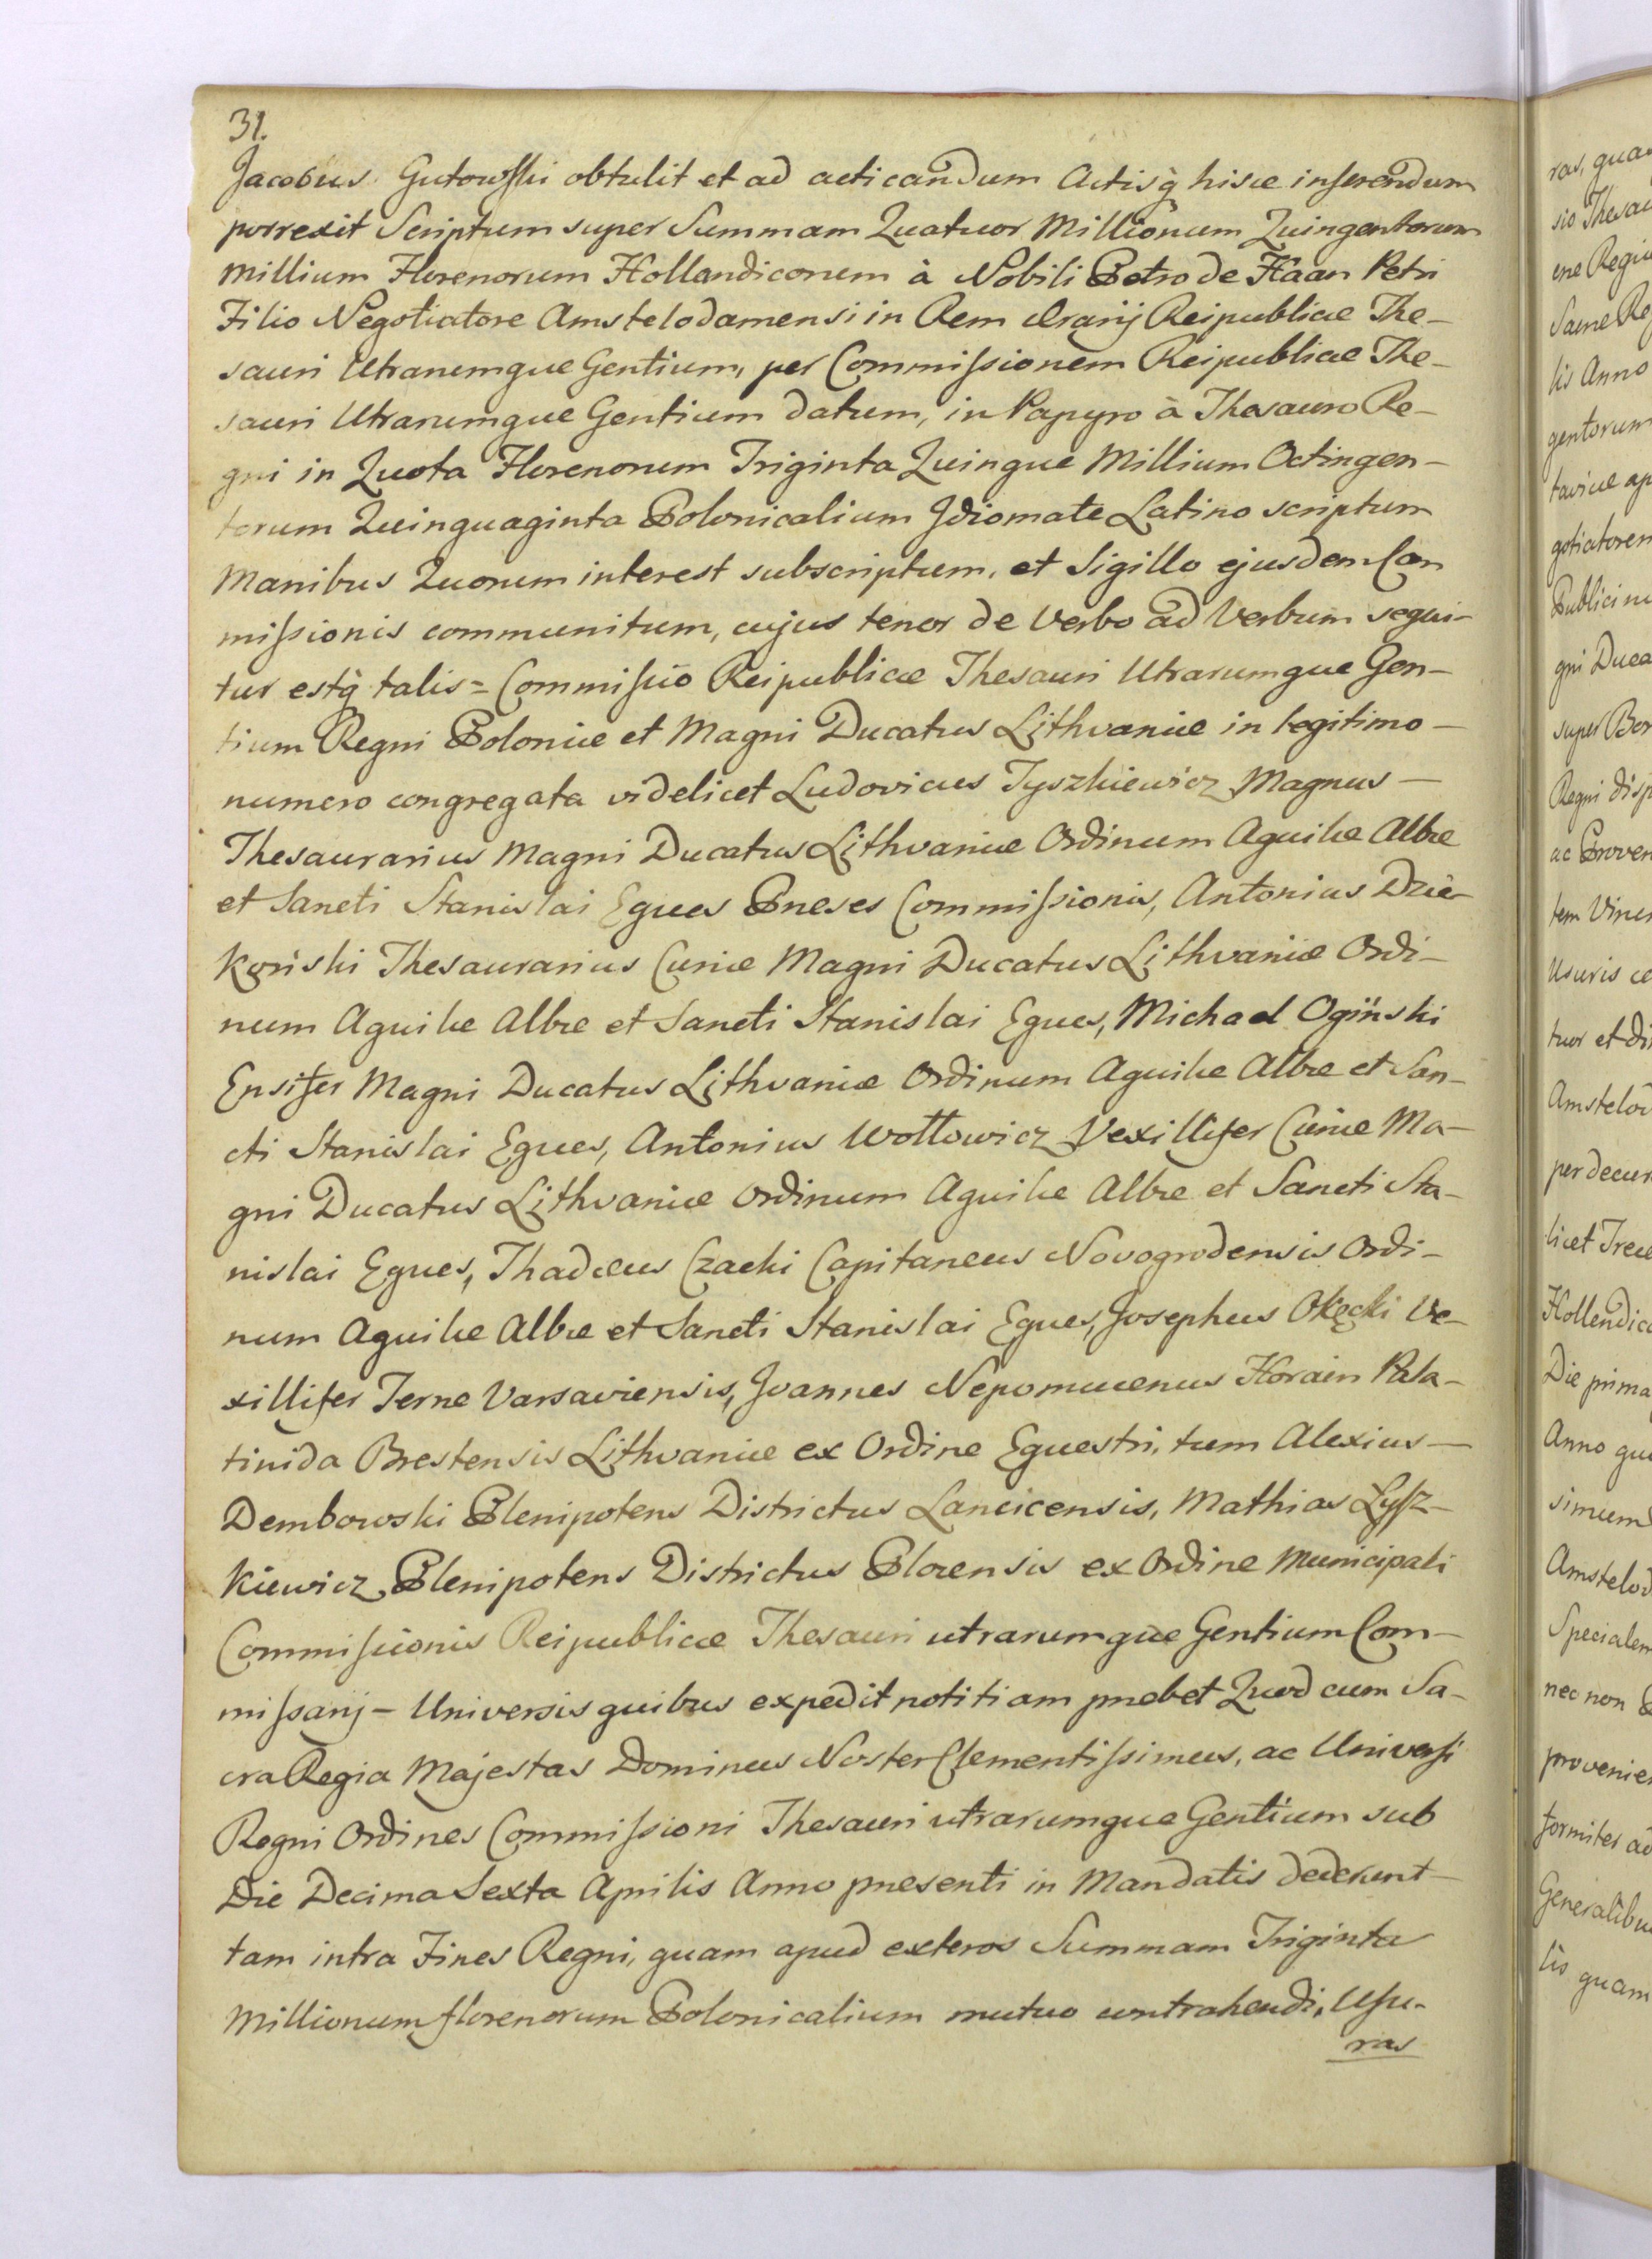 31.
Jacobus Gutowſki obtulit et ad acticandum Actisq̀ hisce inſerendum
porrexit Scriptum super Summam Quatuor Millionum Quingentorum
Millium Florenorum Hollandicorum à Nobili Petro de Haan Petri
Filio Negotiatore Amstelodamensi in Rem Ærarij Reipublicæ The-
sauri Utrarumque Gentium, per Commiſsionem Reipublicæ The-
sauri Utrarumque Gentium datum, in Papyro à Thesauro Re-
gni in Quota Florenorum Triginta Quinque Millium Octingen-
torum Quinquaginta Polonicalium Idiomate Latino scriptum
Manibus Quorum interest subscriptum, et Sigillo ejusdem Com
miſsionis communitum, cujus tenor de Verbo ad Verbum sequi-
tur estq̀ talis = Commiſsio Reipublicæ Thesauri Utrarumque Gen-
tium Regni Poloniæ et Magni Ducatus Lithvaniæ in legitimo -
numero congregata videlicet Ludovicus Tyszkiewicz Magnus -
Thesaurarius Magni Ducatus Lithvaniæ Ordinum Aquilæ Albæ
et Sancti Stanislai Eques Præses Commiſsionis, Antonius Dzie-
koński Thesaurarius Curiæ Magni Ducatus Lithvaniæ Ordi-
num Aquilæ Albæ et Sancti Stanislai Eques, Michael Ogiński
Ensifer Magni Ducatus Lithvaniæ Ordinum Aquilæ Albæ et San-
cti Stanislai Eques, Antonius Wołłowicz Vexillifer Curiæ Ma-
gni Ducatus Lithvaniæ Ordinum Aquilæ Albæ et Sancti Sta-
nislai Eques, Thadæus Czacki Capitaneus Novogrodensis Ordi-
num Aquilæ Albæ et Sancti Stanislai Eques, Josephus Okęcki Ve-
xillifer Terræ Varsaviensis, Joannes Nepomucenus Horain Pala-
tinida Brestensis Lithvaniæ ex Ordine Equestri, tum Alexius -
Dembowski Plenipotens Districtus Lancicensis, Mathias Łyſz-
kiewicz Plenipotens Districtus Plocensis ex Ordine Municipali
Commiſsionis Reipublicæ Thesauri utrarumque Gentium Com-
miſsarij - Universis quibus expedit notitiam præbet Quod cum Sa-
cra Regia Majestas Dominus Noster Clementiſsimus, ac Universi
Regni Ordines Commiſsioni Thesauri utrarumque Gentium sub
Die Decima Sexta Aprilis Anno præsenti in Mandatis dederunt -
tam intra Fines Regni, quam apud exteros Summam Triginta
Millionum florenorum Polonicalium mutuo contrahendi, Uſu-
ras
ras, qua
sio Thesau
Anno
gentorum
gotiatorem
gni Duca
super Bor
Regni disp
ac Proven
tem Vine
Usuris
tuor et di
Amstelod
per decur
licet Trece
Hollendic
Die prima
Anno qu
simum
Amstelod
Specialem
nec non
provenie
formiter ad
Generalibu
lis quam